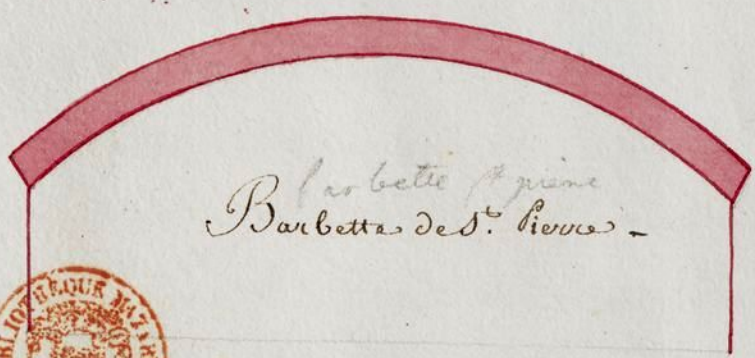 barbette St pierre
Barbette de St. Pierre -
BLIOTHEQUE MAZAR